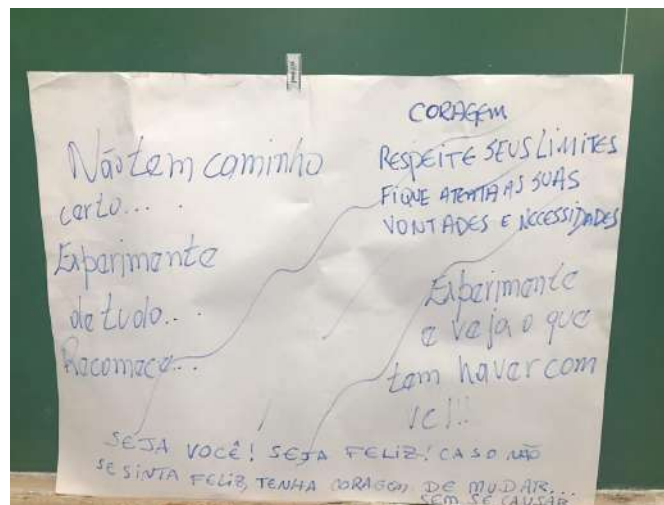 Não tem caminho
certo...
Experimente
de tudo...
Recomece...
CORAGEM
RESPEITE SEUS LIMITES
FIQUE ATENTA AS SUAS
VONTADES E NECESSIDADES
Experimente
e veja o que
tem haver com
SEJA VOCÊ! SEJA FELIZ! CASO NÃO
SE SINTA FELIZ, TENHA CORAGEM DE MUDAR...
SEM SE CAUSAR